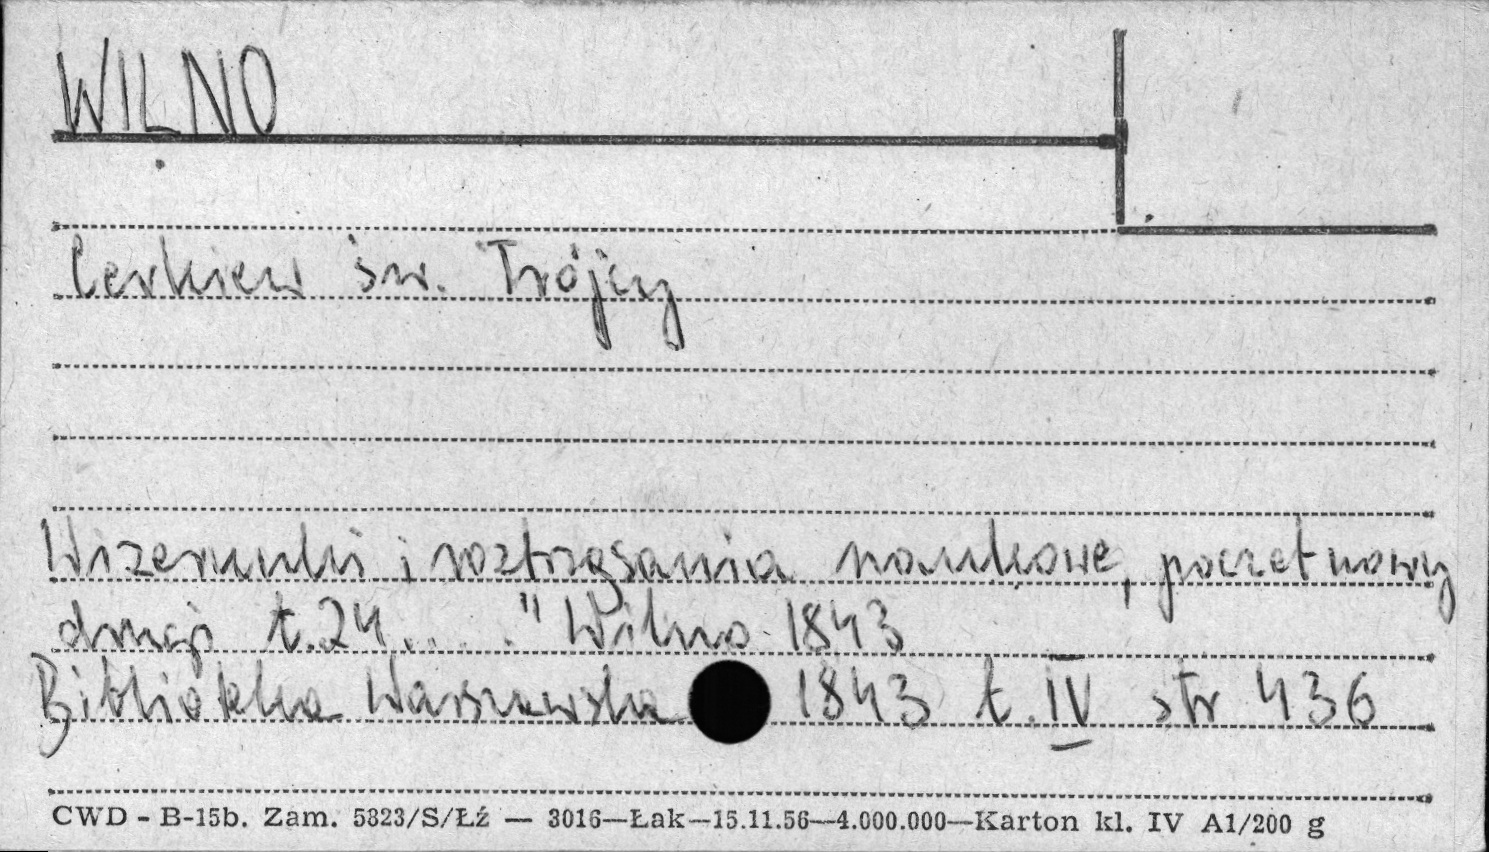 WILNO
Cerkiew św. Trójcy
Wizerunki i roztrząsania naukowe, poczet nowy
drugi t.24....." Wilno 1843
Biblioteka Warszawska 1843 t. IV str 436
CWD - B-15b. Zam. 5823/S/Łź — 3016—Łak—15.11.56—4.000.000—Karton kl. IV A1/200 g